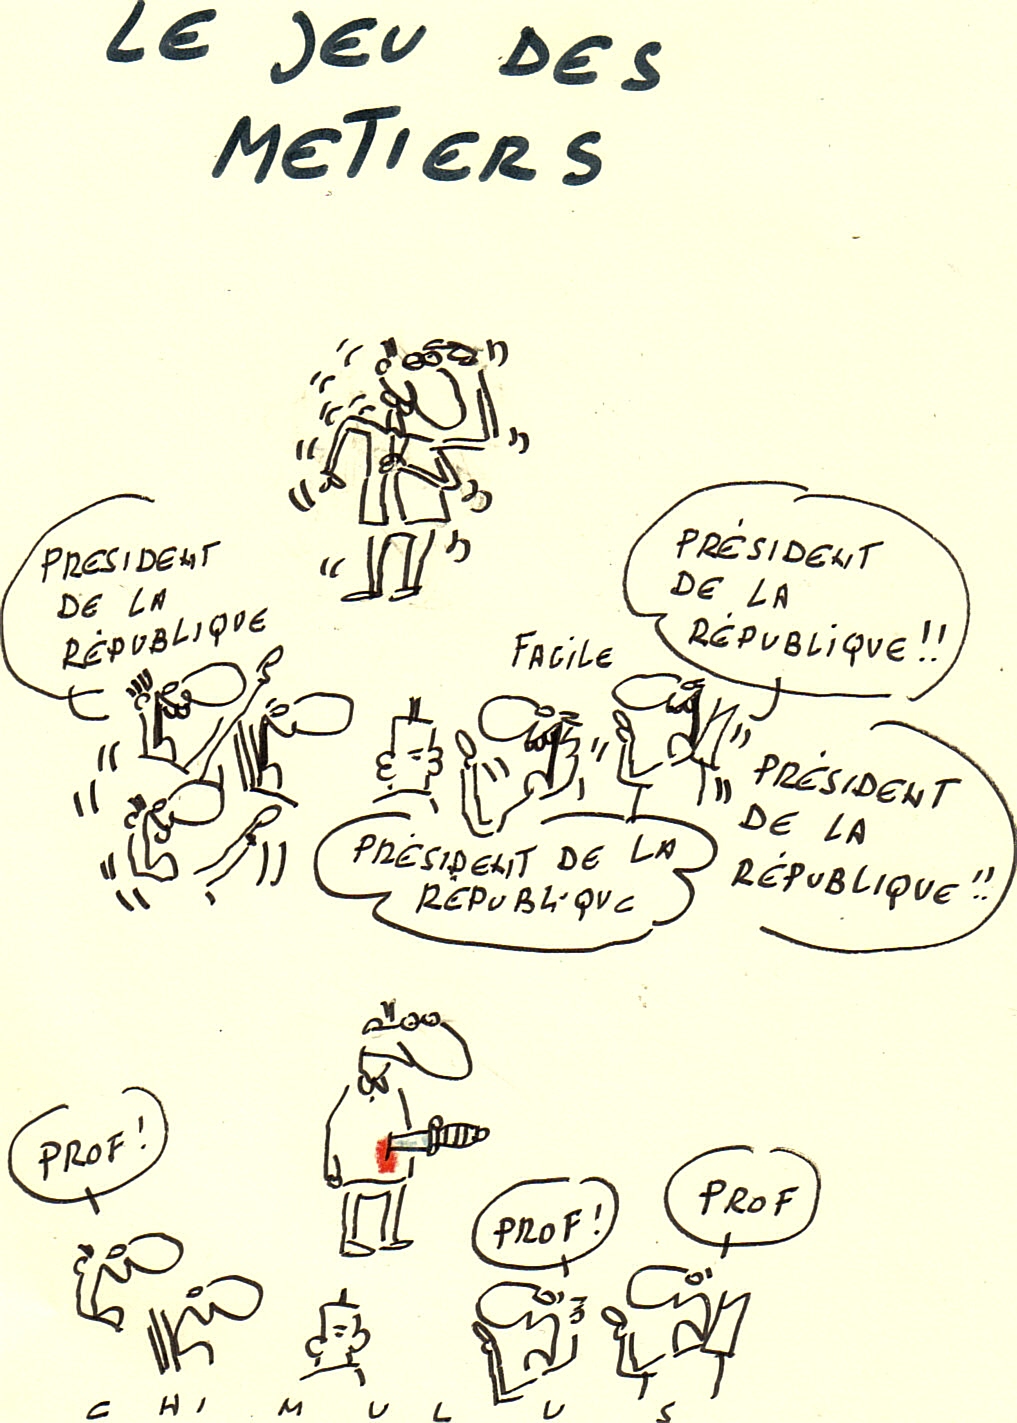 LE JEU DES
METIERS
PRESIDENT
DE LA
RÉPUBLIQUE
FACILE
PRÉSIDENT
DE LA
RÉPUBLIQUE!!
PRÉSIDENT
DE LA
RÉPUBLIQUE!!
PRÉSIDENT DE LA
RÉPUBLIQUE
PROF!
PROF!
PROF
CHIMULUS